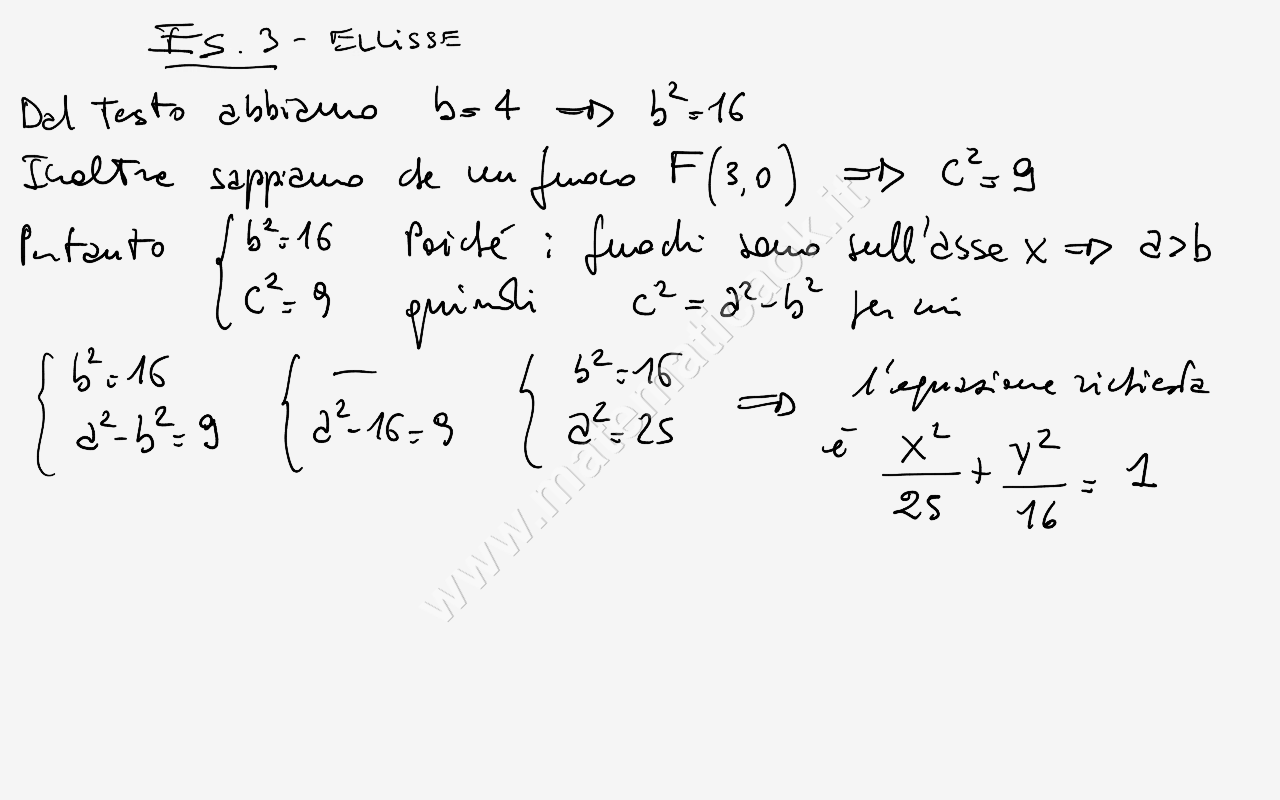 Es. 3 - ELLISSE
Dal testo abbiamo b = 4 => b² = 16
Inoltre sappiamo che un fuoco F(3,0) => c² = 9
Pertanto { b² = 16 Poiché i fuochi sono sull'asse x => a > b
c² = 9 quindi c² = a² - b² per cui
{ b² = 16 { — { b² = 16 => l'equazione richiesta
a² - b² = 9 a² - 16 = 9 a² = 25 è x²/25 + y²/16 = 1
www.matematicaok.it